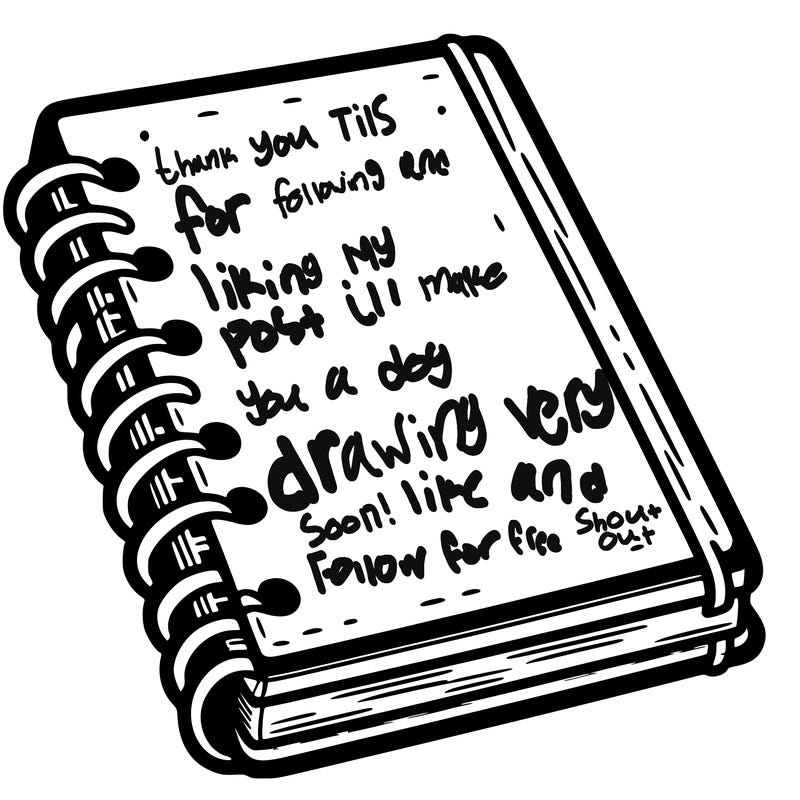 thank you TilS
for following and
liking My
post i'll make
you a dog
drawing very
Soon! like and
Follow for free Shout
out